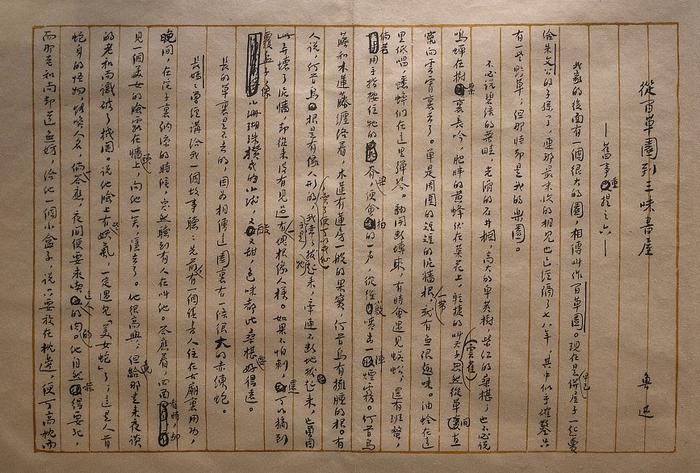 從百草園到三味書屋
——舊事重提之六——
魯迅
我家的後面有一個很大的園，相傳叫作百草園。現在是早已併屋子一起賣
給朱文公的子孫了，連那最末次的相見也已經隔了七八年，其中似乎確鑿只
有一些野草；但那時卻是我的樂園。
不必說碧綠的菜畦，光滑的石井欄，高大的皂莢樹，紫紅的桑椹；也不必說
鳴蟬在樹葉裏長吟，肥胖的黃蜂伏在菜花上，輕捷的叫天子（雲雀）忽然從草間直
竄向雲霄裏去了。單是周圍的短短的泥牆根一帶，就有無限趣味。油蛉在這
里低唱，蟋蟀們在這里彈琴。翻開斷磚來，有時會遇見蜈蚣；還有斑蝥，
倘若用手指按住牠的脊梁，便會拍的一聲，從後竅噴出一陣煙霧。何首烏
藤和木蓮藤纏絡着，木蓮有蓮房一般的果實，何首烏有擁腫的根。有
人說，何首烏根是有像人形的，吃了便可以成仙，我於是常常拔它起來，牽連不斷地拔起來，也曾因
此弄壞了泥牆，卻從來沒有見過有一塊根像人樣。如果不怕刺，還可以摘到
覆盆子，像小珊瑚珠攢成的小球，又酸又甜，色味都比桑椹要好得遠。
長的草裏是不去的，因為相傳這園裏有一條很大的赤練蛇。
長媽媽曾經講給我一個故事聽：先前，有一個讀書人住在古廟裏用功，
晚間，在院子裏納涼的時候，突然聽到有人在叫他。答應着，四面看時，卻
見一個美女的臉露在牆頭上，向他一笑，隱去了。他很高興；但竟給那走來夜談
的老和尚識破了機關。說他臉上有些妖氣，一定遇見「美女蛇」了；這是人首
蛇身的怪物，能喚人名，倘一答應，夜間便要來吃這人的肉的。他自然嚇得要死，
而那老和尚卻道無妨，給他一個小盒子，說只要放在枕邊，便可高枕而